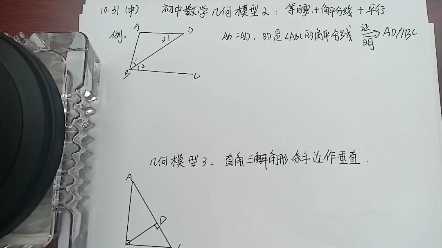 10.31 (中) 初中数学几何模型2: 等腰+角平分线+平行
例. AB=AD, BD是∠ABC的角平分线 证明 AD//BC
A D
3
1 2
B C
几何模型3. 直角三角形 斜边作垂直.
A
D